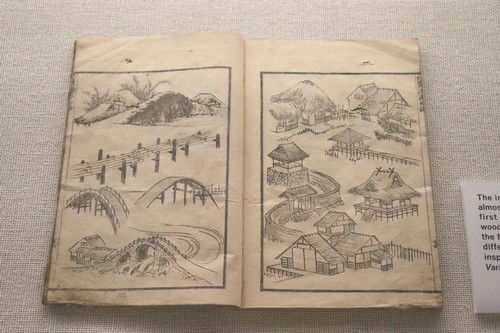 The in
almos
first
wood
the f
differ
insp
Vari